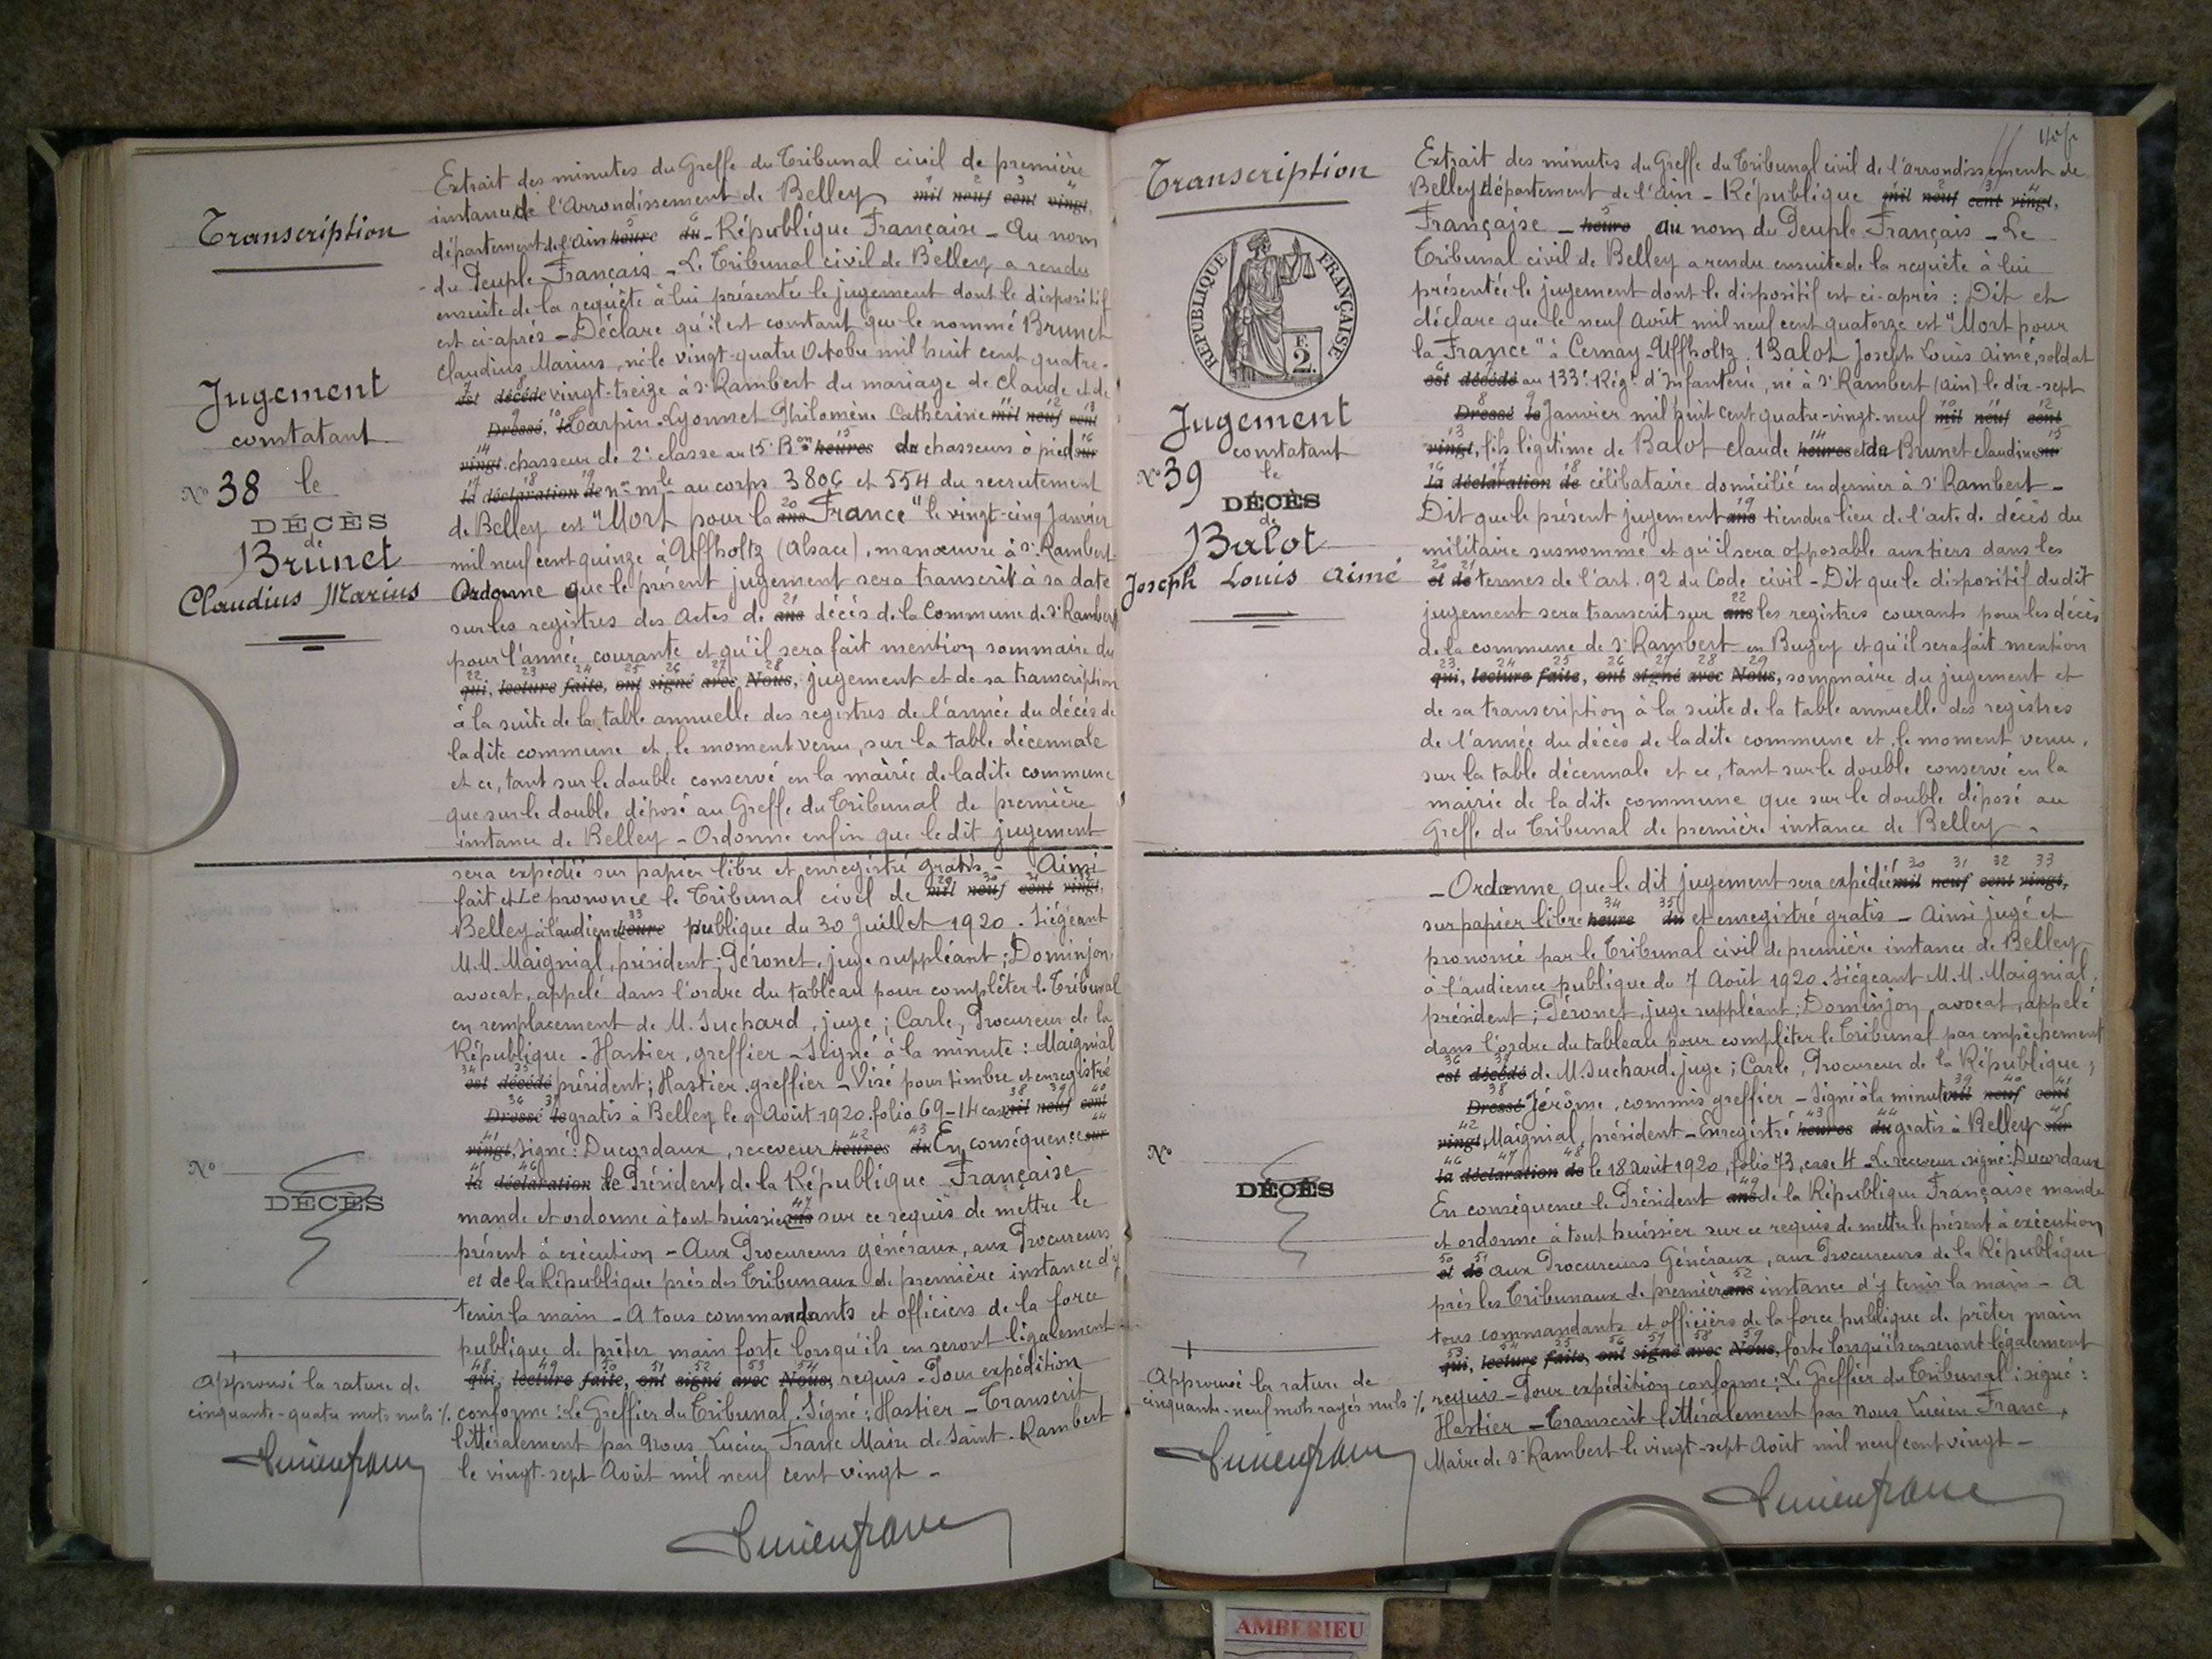 Transcription
Jugement
constatant
N° 38 le
DÉCÈS
de
Brunet
Claudius Marius
Extrait des minutes du Greffe du Tribunal civil de première
instance de l'Arrondissement de Belley mil neuf cent vingt,
département de l'Ain heure du - République Française - Au nom
du Peuple Français - Le Tribunal civil de Belley a rendu
ensuite de la requête à lui présentée le jugement dont le dispositif
est ci-après - Déclare qu'il est constant que le nommé Brunet
Claudius Marius, né le vingt-quatre Octobre mil huit cent quatre-
est décédé vingt-treize à St Rambert du mariage de Claude et de
Dressé, le Carpin-Lyonnet Philomène Catherine mil neuf cent
vingt, chasseur de 2e classe au 15e Bon heures du chasseurs à pied sur
la déclaration de non mle au corps 3806 et 554 du recrutement
de Belley est "Mort pour la ans France" le vingt-cinq Janvier
mil neuf cent quinze à Uffholtz (Alsace), manœuvre à St Rambert.
Ordonne que le présent jugement sera transcrit à sa date
sur les registres des Actes de ans décès de la Commune de St Rambert
pour l'année courante et qu'il sera fait mention sommaire du
qui, lecture faite, ont signé avec Nous, jugement et de sa transcription
à la suite de la table annuelle des registres de l'année du décès de
ladite commune et, le moment venu, sur la table décennale
et ce, tant sur le double conservé en la mairie de ladite commune
que sur le double déposé au Greffe du Tribunal de première
instance de Belley - Ordonne enfin que le dit jugement
sera expédié sur papier libre et enregistré gratis - Ainsi
fait et Le prononce le Tribunal civil de mil neuf cent vingt,
Belley à l'audience heure publique du 30 Juillet 1920. Siégeant
M.M. Maignial, président; Péronet, juge suppléant; Dominjon,
avocat, appelé dans l'ordre du tableau pour compléter le Tribunal
en remplacement de M. Suchard, juge; Carle, Procureur de la
République - Hastier, greffier - Signé à la minute: Maignial
est décédé président; Hastier, greffier - Visé pour timbre et enregistré
Dressé le gratis à Belley le 9 Août 1920. folio 69 - 14 cas mil neuf cent
vingt, Signé: Ducordaux, receveur heures du En conséquence sur
la déclaration de Le Président de la République Française
mande et ordonne à tout huissier ans sur ce requis de mettre le
présent à exécution - Aux Procureurs généraux, aux Procureurs
et de la République près des Tribunaux de première instance d'y
tenir la main - A tous commandants et officiers de la force
publique de prêter main forte lorsqu'ils en seront légalement
qui, lecture faite, ont signé avec Nous, requis - Pour expédition
conforme: Le Greffier du Tribunal. Signé: Hastier - Transcrit
littéralement par Nous Lucien Franc Maire de Saint-Rambert
le vingt-sept Août mil neuf cent vingt -
N°
DÉCÈS
Approuvé la rature de
cinquante-quatre mots nuls ./.
Lucien Franc
Lucien Franc
Transcription
RÉPUBLIQUE FRANÇAISE
F.
2.
Jugement
constatant
N° 39 le
DÉCÈS
de
Balot
Joseph Louis Aimé
Extrait des minutes du Greffe du Tribunal civil de l'Arrondissement de
Belley département de l'Ain - République mil neuf cent vingt,
Française - heure au nom du Peuple Français - Le
Tribunal civil de Belley a rendu ensuite de la requête à lui
présentée le jugement dont le dispositif est ci-après: Dit et
déclare que le neuf Août mil neuf cent quatorze est "Mort pour
la France" à Cernay-Uffholtz. Balot Joseph Louis Aimé, soldat
est décédé au 133e Régt d'Infanterie, né à St Rambert (Ain) le dix-sept
Dressé le Janvier mil huit cent quatre-vingt-neuf mil neuf cent
vingt, fils légitime de Balot Claude heures et de Brunet Claudine sur
la déclaration de célibataire domicilié en dernier à St Rambert -
Dit que le présent jugement ans tiendra lieu de l'acte de décès du
militaire susnommé et qu'il sera opposable aux tiers dans les
et de termes de l'art. 92 du Code civil - Dit que le dispositif du dit
jugement sera transcrit sur ans les registres courants pour les décès
de la commune de St Rambert en Bugey et qu'il sera fait mention
qui, lecture faite, ont signé avec Nous, sommaire du jugement et
de sa transcription à la suite de la table annuelle des registres
de l'année du décès de ladite commune et, le moment venu,
sur la table décennale et ce, tant sur le double conservé en la
mairie de la dite commune que sur le double déposé au
Greffe du Tribunal de première instance de Belley -
- Ordonne que le dit jugement sera expédié mil neuf cent vingt,
sur papier libre heure du et enregistré gratis - Ainsi jugé et
prononcé par le Tribunal civil de première instance de Belley
à l'audience publique du 7 Août 1920. Siégeant M.M. Maignial,
président; Péronet, juge suppléant; Dominjon, avocat, appelé
dans l'ordre du tableau pour compléter le Tribunal par empêchement
est décédé de M. Suchard, juge; Carle, Procureur de la République;
Dressé Jérôme, commis greffier - Signé à la minute mil neuf cent
vingt, Maignial, président - Enregistré heures du gratis à Belley sur
la déclaration de le 18 août 1920, folio 73, case 4. Le receveur signé: Ducordaux
En conséquence le Président ans de la République Française mande
et ordonne à tout huissier sur ce requis de mettre le présent à exécution
et de aux Procureurs Généraux, aux Procureurs de la République
près les Tribunaux de première ans instance d'y tenir la main - A
tous commandants et officiers de la force publique de prêter main
qui, lecture faite, ont signé avec Nous, forte lorsqu'ils en seront légalement
requis - Pour expédition conforme: Le Greffier du Tribunal: signé:
Hastier - Transcrit littéralement par Nous Lucien Franc,
Maire de St Rambert le vingt-sept Août mil neuf cent vingt -
N°
DÉCÈS
Approuvé la rature de
cinquante-neuf mots rayés nuls ./.
Lucien Franc
Lucien Franc
AMBERIEU